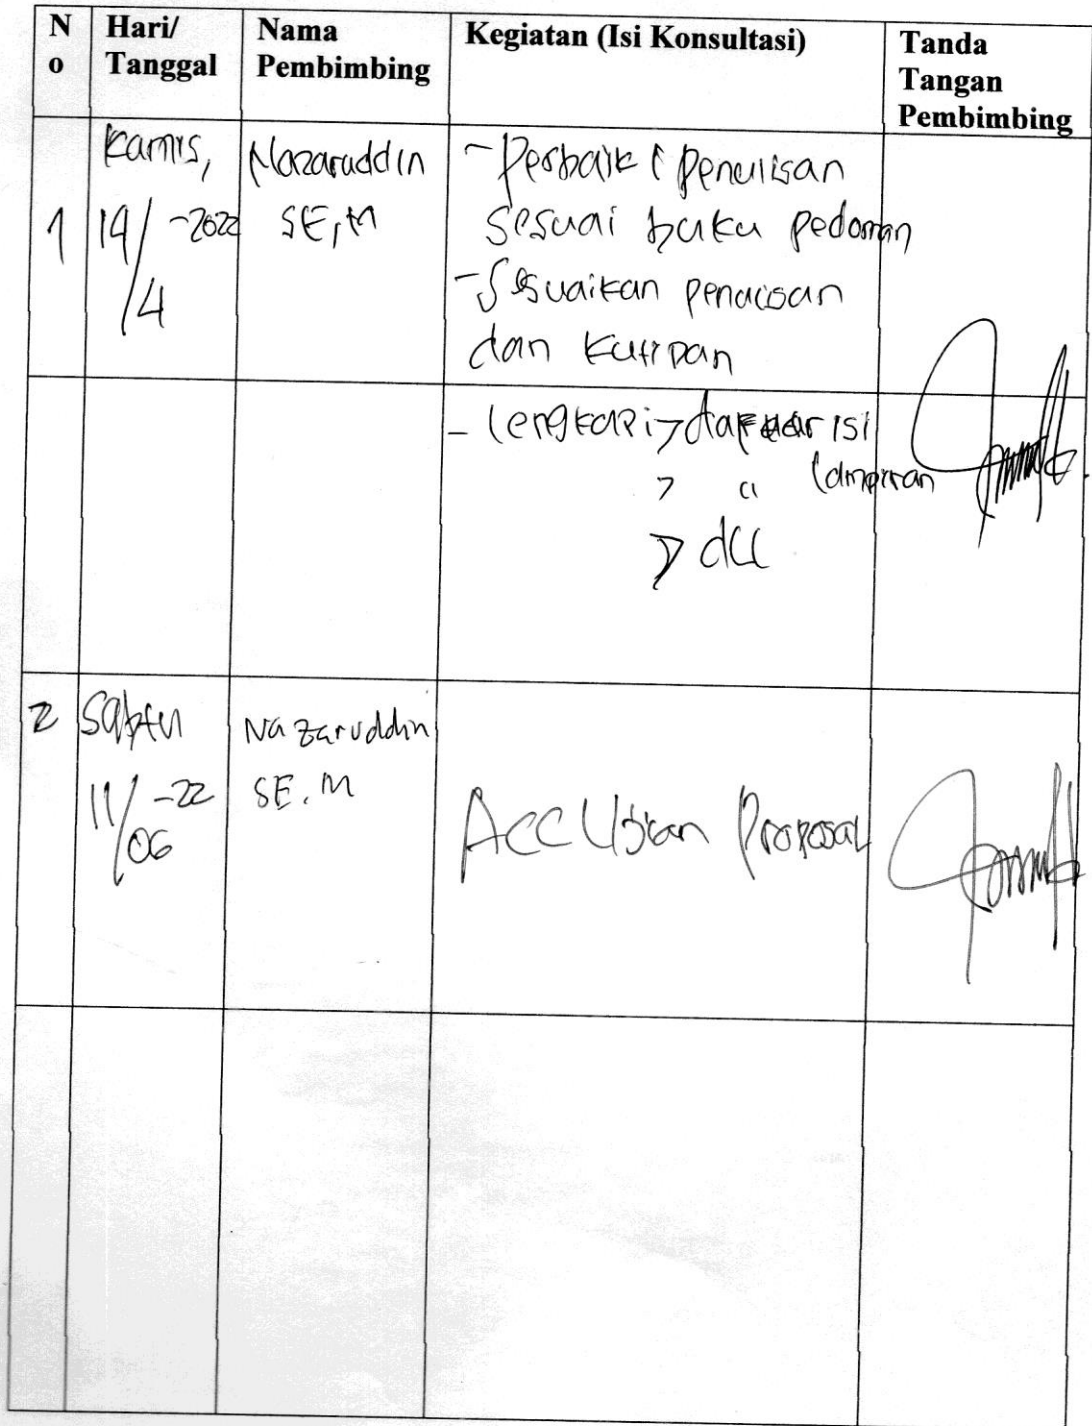 No
Hari/
Tanggal
Nama
Pembimbing
Kegiatan (Isi Konsultasi)
Tanda
Tangan
Pembimbing
1
Kamis,
14/ -2022
/4
Nazaruddin
SE,M
- Perbaiki penulisan
sesuai buku pedoman
- Sesuaikan penulisan
dan kutipan
- lengkapi > daftar isi
> " lampiran
> dll
2
Sabtu
11/ -22
/06
Nazaruddin
SE.M
ACC Ujian Proposal